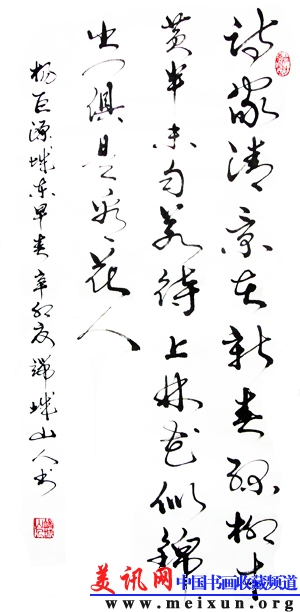 詩家清景在新春綠柳才
黄半未匀若待上林花似錦
出门俱是看花人
杨巨源城东早春 辛卯夏 城山人书
美讯网 中国书画收藏频道
www.meixun.org